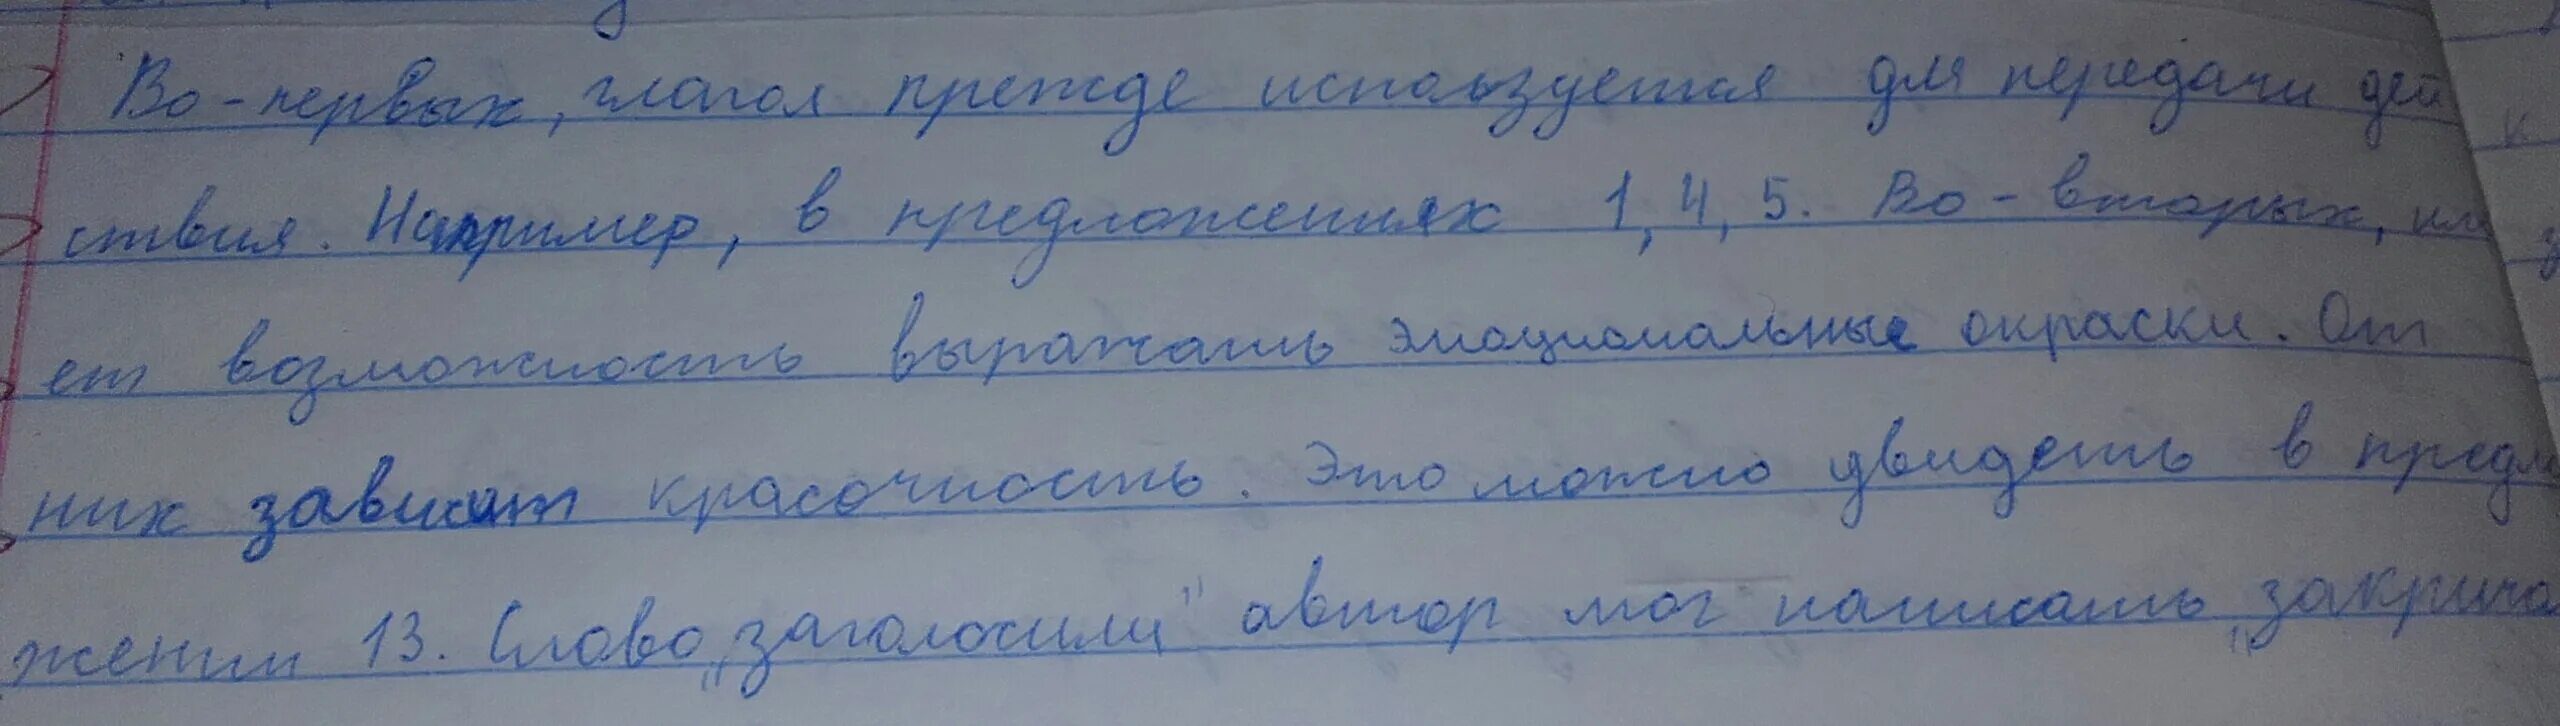 Во-первых, глагол прежде используется для передачи дей
ствия. Например, в предложениях 1, 4, 5. Во-вторых, им
ет возможность выражать эмоциональные окраски. От
них зависит красочность. Это можно увидеть в предл
жении 13. Слово „заголосили" автор мог написать „закрича